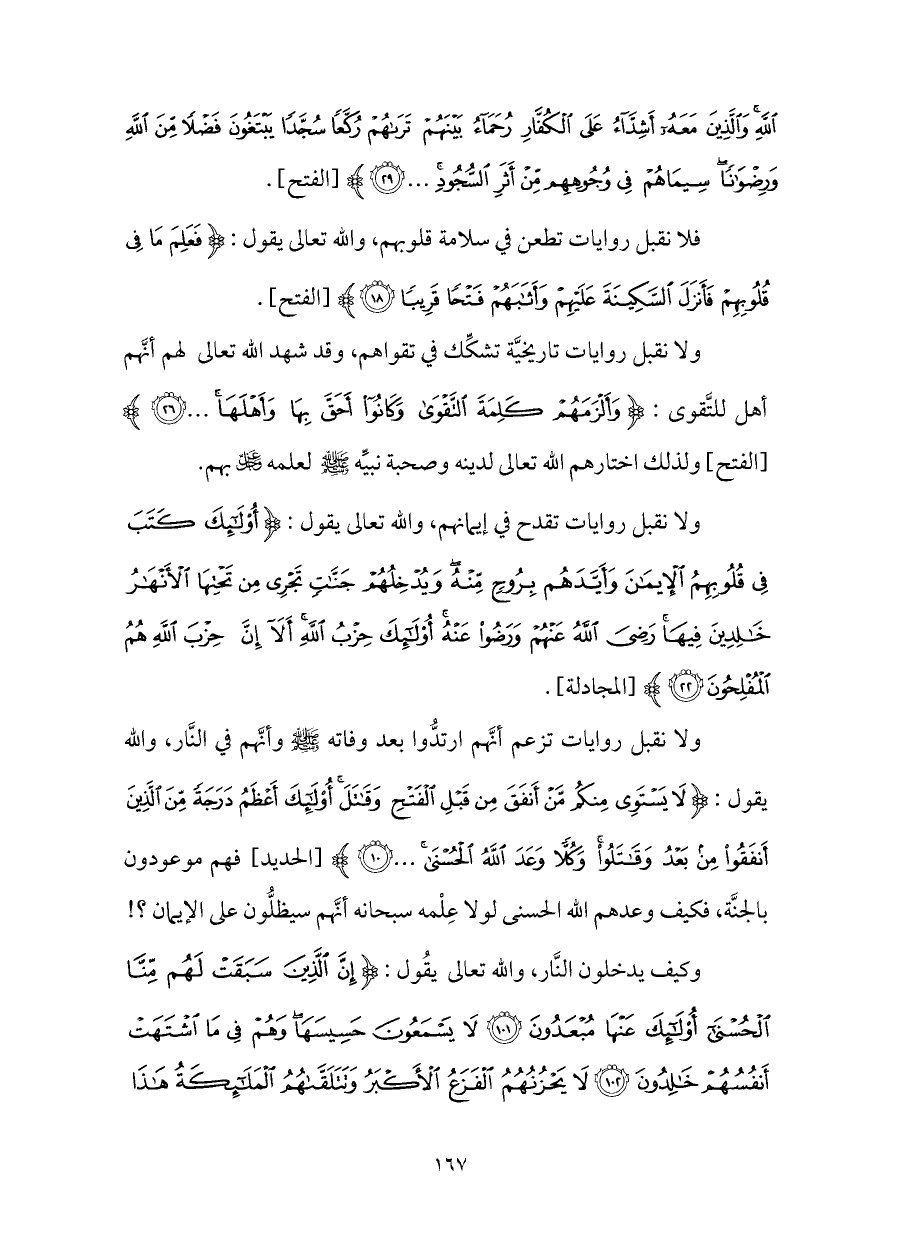 ٱللَّهِۚ وَٱلَّذِينَ مَعَهُۥٓ أَشِدَّآءُ عَلَى ٱلۡكُفَّارِ رُحَمَآءُ بَيۡنَهُمۡۖ تَرَىٰهُمۡ رُكَّعٗا سُجَّدٗا يَبۡتَغُونَ فَضۡلٗا مِّنَ ٱللَّهِ
وَرِضۡوَٰنٗاۖ سِيمَاهُمۡ فِي وُجُوهِهِم مِّنۡ أَثَرِ ٱلسُّجُودِۚ ... ٢٩ ﴾ [الفتح] .
فلا نقبل روايات تطعن في سلامة قلوبهم، والله تعالى يقول : ﴿ فَعَلِمَ مَا فِي
قُلُوبِهِمۡ فَأَنزَلَ ٱلسَّكِينَةَ عَلَيۡهِمۡ وَأَثَٰبَهُمۡ فَتۡحٗا قَرِيبٗا ١٨ ﴾ [الفتح] .
ولا نقبل روايات تاريخيَّة تشكِّك في تقواهم، وقد شهد الله تعالى لهم أنَّهم
أهل للتَّقوى : ﴿ وَأَلۡزَمَهُمۡ كَلِمَةَ ٱلتَّقۡوَىٰ وَكَانُوٓاْ أَحَقَّ بِهَا وَأَهۡلَهَاۚ ... ٢٦ ﴾
[الفتح] ولذلك اختارهم الله تعالى لدينه وصحبة نبيِّه ﷺ لعلمه ﷻ بهم.
ولا نقبل روايات تقدح في إيمانهم، والله تعالى يقول : ﴿ أُوْلَٰٓئِكَ كَتَبَ
فِي قُلُوبِهِمُ ٱلۡإِيمَٰنَ وَأَيَّدَهُم بِرُوحٖ مِّنۡهُۖ وَيُدۡخِلُهُمۡ جَنَّٰتٖ تَجۡرِي مِن تَحۡتِهَا ٱلۡأَنۡهَٰرُ
خَٰلِدِينَ فِيهَاۚ رَضِيَ ٱللَّهُ عَنۡهُمۡ وَرَضُواْ عَنۡهُۚ أُوْلَٰٓئِكَ حِزۡبُ ٱللَّهِۚ أَلَآ إِنَّ حِزۡبَ ٱللَّهِ هُمُ
ٱلۡمُفۡلِحُونَ ٢٢ ﴾ [المجادلة] .
ولا نقبل روايات تزعم أنَّهم ارتدُّوا بعد وفاته ﷺ وأنَّهم في النَّار، والله
يقول : ﴿ لَا يَسۡتَوِي مِنكُم مَّنۡ أَنفَقَ مِن قَبۡلِ ٱلۡفَتۡحِ وَقَٰتَلَۚ أُوْلَٰٓئِكَ أَعۡظَمُ دَرَجَةٗ مِّنَ ٱلَّذِينَ
أَنفَقُواْ مِنۢ بَعۡدُ وَقَٰتَلُواْۚ وَكُلّٗا وَعَدَ ٱللَّهُ ٱلۡحُسۡنَىٰۚ ... ١٠ ﴾ [الحديد] فهم موعودون
بالجنَّة، فكيف وعدهم الله الحسنى لولا عِلْمه سبحانه أنَّهم سيظلُّون على الإيمان ؟!
وكيف يدخلون النَّار، والله تعالى يقُول : ﴿ إِنَّ ٱلَّذِينَ سَبَقَتۡ لَهُم مِّنَّا
ٱلۡحُسۡنَىٰٓ أُوْلَٰٓئِكَ عَنۡهَا مُبۡعَدُونَ ١٠١ لَا يَسۡمَعُونَ حَسِيسَهَاۖ وَهُمۡ فِي مَا ٱشۡتَهَتۡ
أَنفُسُهُمۡ خَٰلِدُونَ ١٠٢ لَا يَحۡزُنُهُمُ ٱلۡفَزَعُ ٱلۡأَكۡبَرُ وَتَتَلَقَّىٰهُمُ ٱلۡمَلَٰٓئِكَةُ هَٰذَا
١٦٧